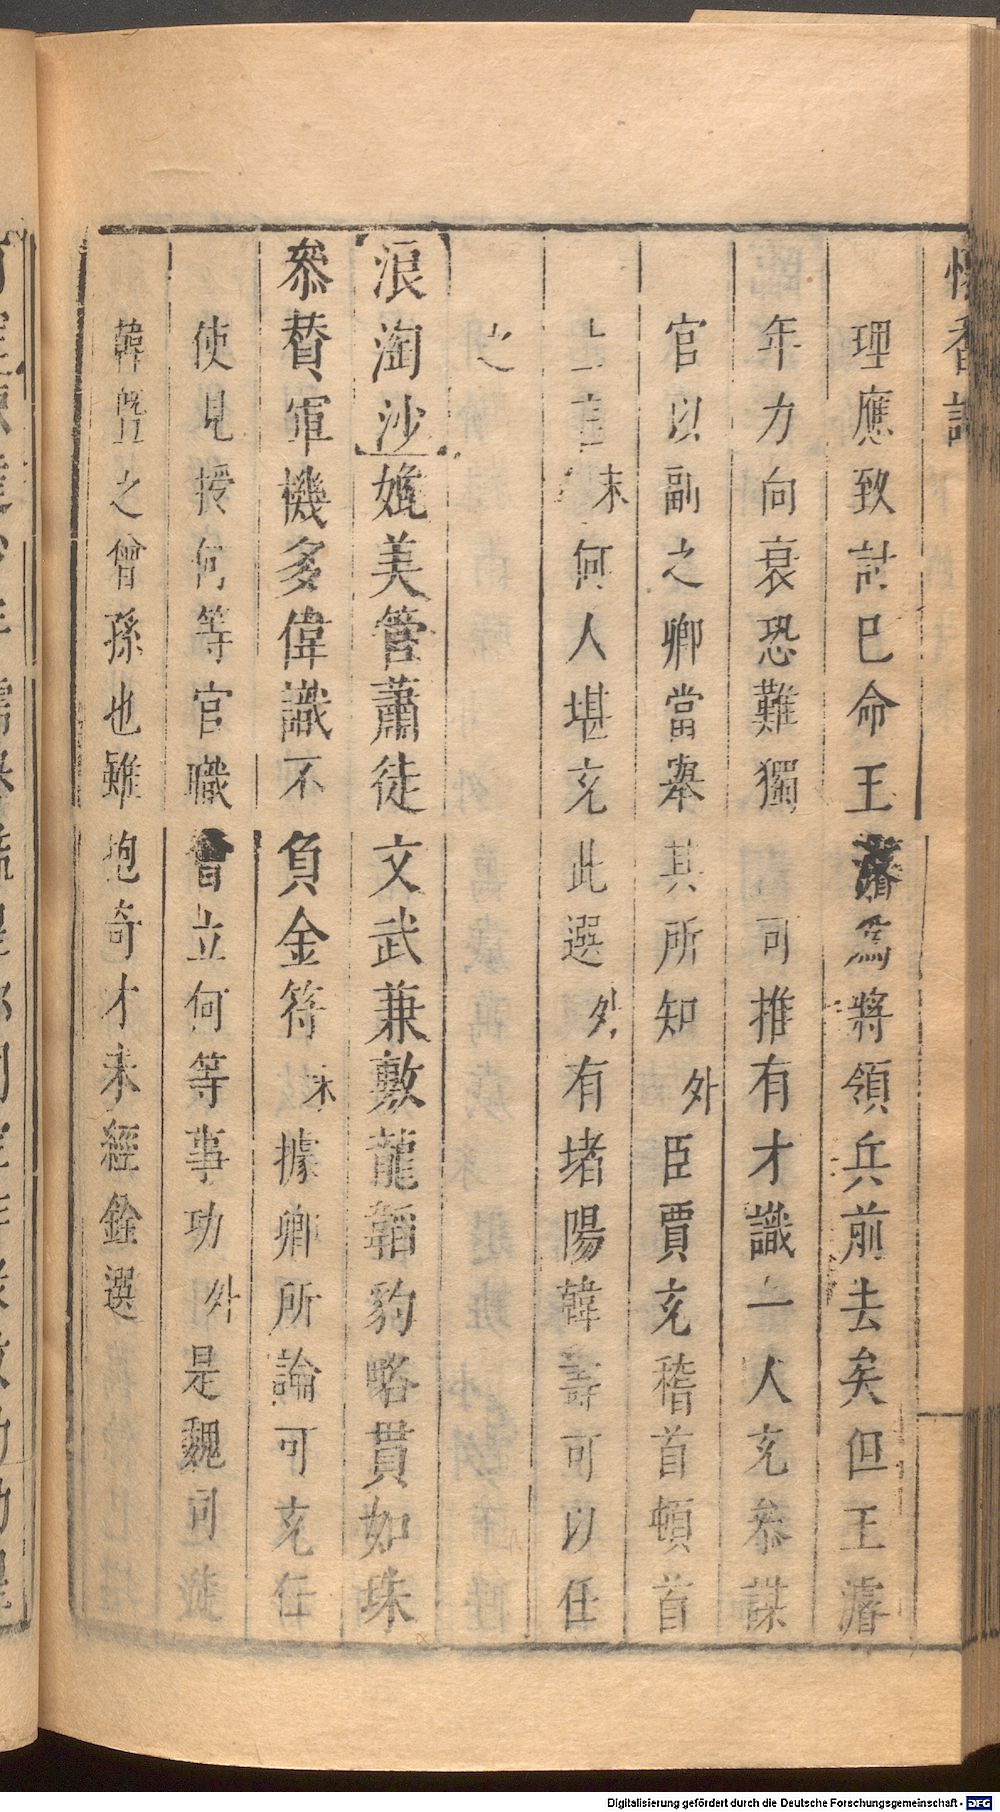 懷香記
理應致討已命王濬爲將領兵前去矣但王濬
年力向衰恐難獨可推有才識一人充叅謀
官以副之卿當舉其所知外臣賈充稽首頓首
上言末何人堪充此選外有堵陽韓壽可以任
之
浪淘沙媲美管蕭徒文武兼敷龍韜豹略貫如珠
叅賛軍機多偉識不負金符末據卿所論可充任
使見授何等官職曾立何等事功外是魏司徒
韓曁之曾孫也雖抱奇才未經銓選
Digitalisierung gefördert durch die Deutsche Forschungsgemeinschaft - DFG